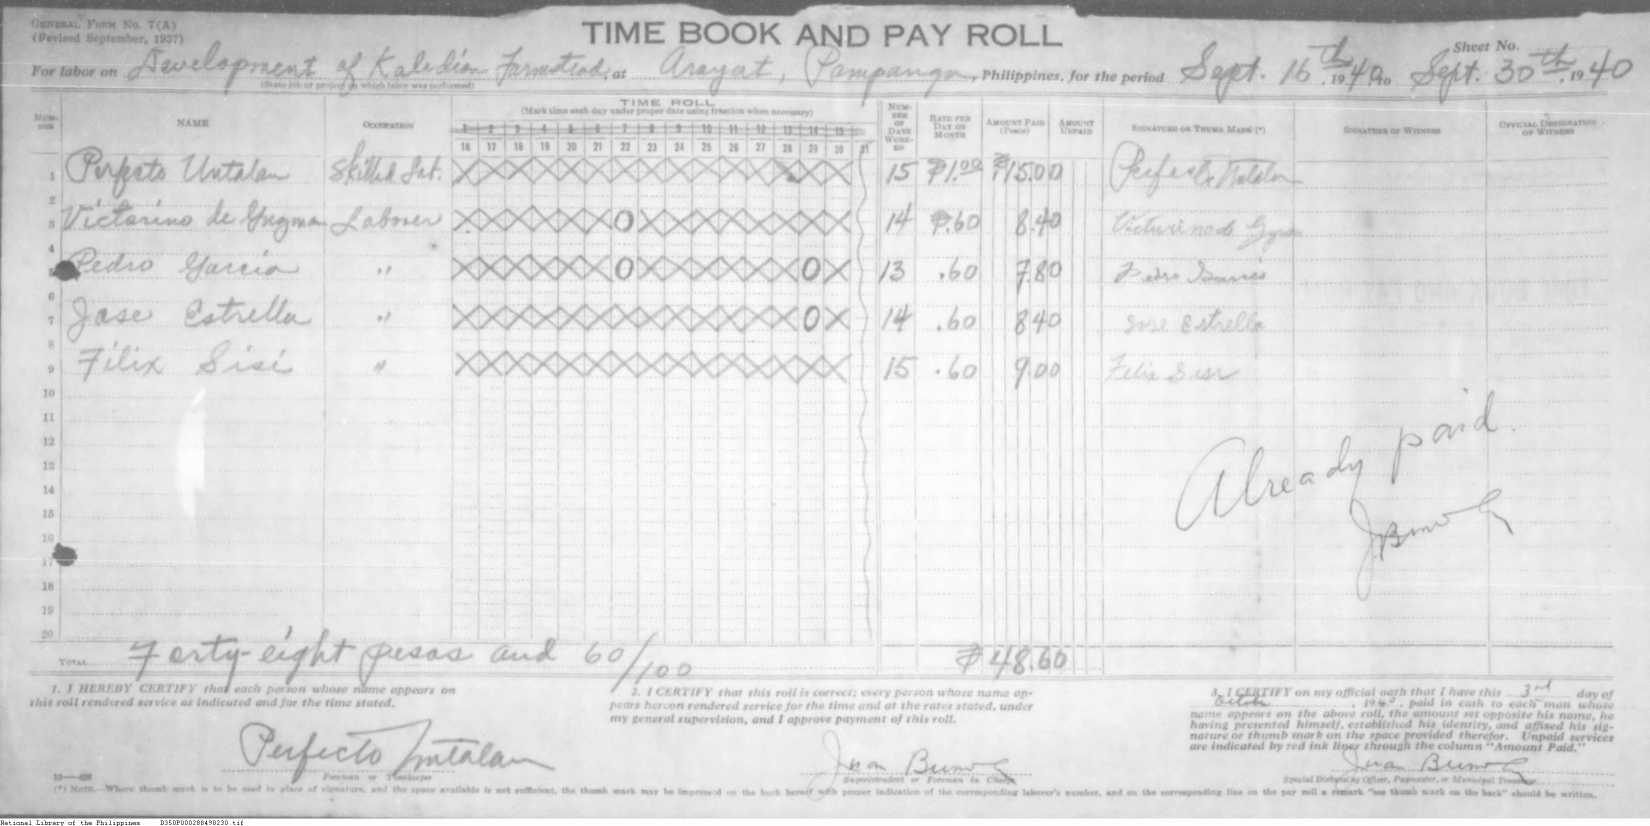 GENERAL FORM NO. 7(A)
(Revised September, 1937)
TIME BOOK AND PAY ROLL
Sheet No.
For labor on Development of Kaledian Farmstead, at Arayat, Pampanga, Philippines, for the period Sept. 16th, 1940 to Sept. 30th, 1940
(State job or project on which labor was performed)
NUMBER NAME OCCUPATION TIME ROLL NUMBER OF DAYS WORKED RATE PER DAY OR MONTH AMOUNT PAID (Pesos) AMOUNT UNPAID SIGNATURE OR THUMB MARK (*) SIGNATURE OF WITNESS OFFICIAL DESIGNATION OF WITNESS
(Mark time each day under proper date using fraction when necessary)
1 2 3 4 5 6 7 8 9 10 11 12 13 14 15
16 17 18 19 20 21 22 23 24 25 26 27 28 29 30 31
1 Perfecto Untalan Skilled Lab. X X X X X X X X X X X X X X X 15 ₱1.00 ₱15.00 Perfecto Untalan
2
3 Victorino de Guzman Laborer X X X X X X O X X X X X X X X 14 ₱.60 8.40
4
5 Pedro Garcia " X X X X X X O X X X X X X O X 13 .60 7.80 Pedro Garcia
6
7 Jose Estrella " X X X X X X X X X X X X X O X 14 .60 8.40 Jose Estrella
8
9 Filix Sisi " X X X X X X X X X X X X X X X 15 .60 9.00 Felix Sisi
10
11
12
13
14
15
16
17
18
19
20
Already paid.
TOTAL Forty-eight pesos and 60/100 ₱48.60
1. I HEREBY CERTIFY that each person whose name appears on
this roll rendered service as indicated and for the time stated.
Perfecto Untalan
Foreman or Timekeeper
2. I CERTIFY that this roll is correct; every person whose name ap-
pears hereon rendered service for the time and at the rates stated, under
my general supervision, and I approve payment of this roll.
Juan
Superintendent or Foreman in Charge
3. I CERTIFY on my official oath that I have this 3rd day of
October, 1940, paid in cash to each man whose
name appears on the above roll, the amount set opposite his name, he
having presented himself, established his identity, and affixed his sig-
nature or thumb mark on the space provided therefor. Unpaid services
are indicated by red ink lines through the column "Amount Paid."
Juan
Special Disbursing Officer, Paymaster, or Municipal Treasurer
(*) NOTE.—Where thumb mark is to be used in place of signature, and the space available is not sufficient, the thumb mark may be impressed on the back hereof with proper indication of the corresponding laborer's number, and on the corresponding line on the pay roll a remark "see thumb mark on the back" should be written.
National Library of the Philippines D350P000288498230.tif